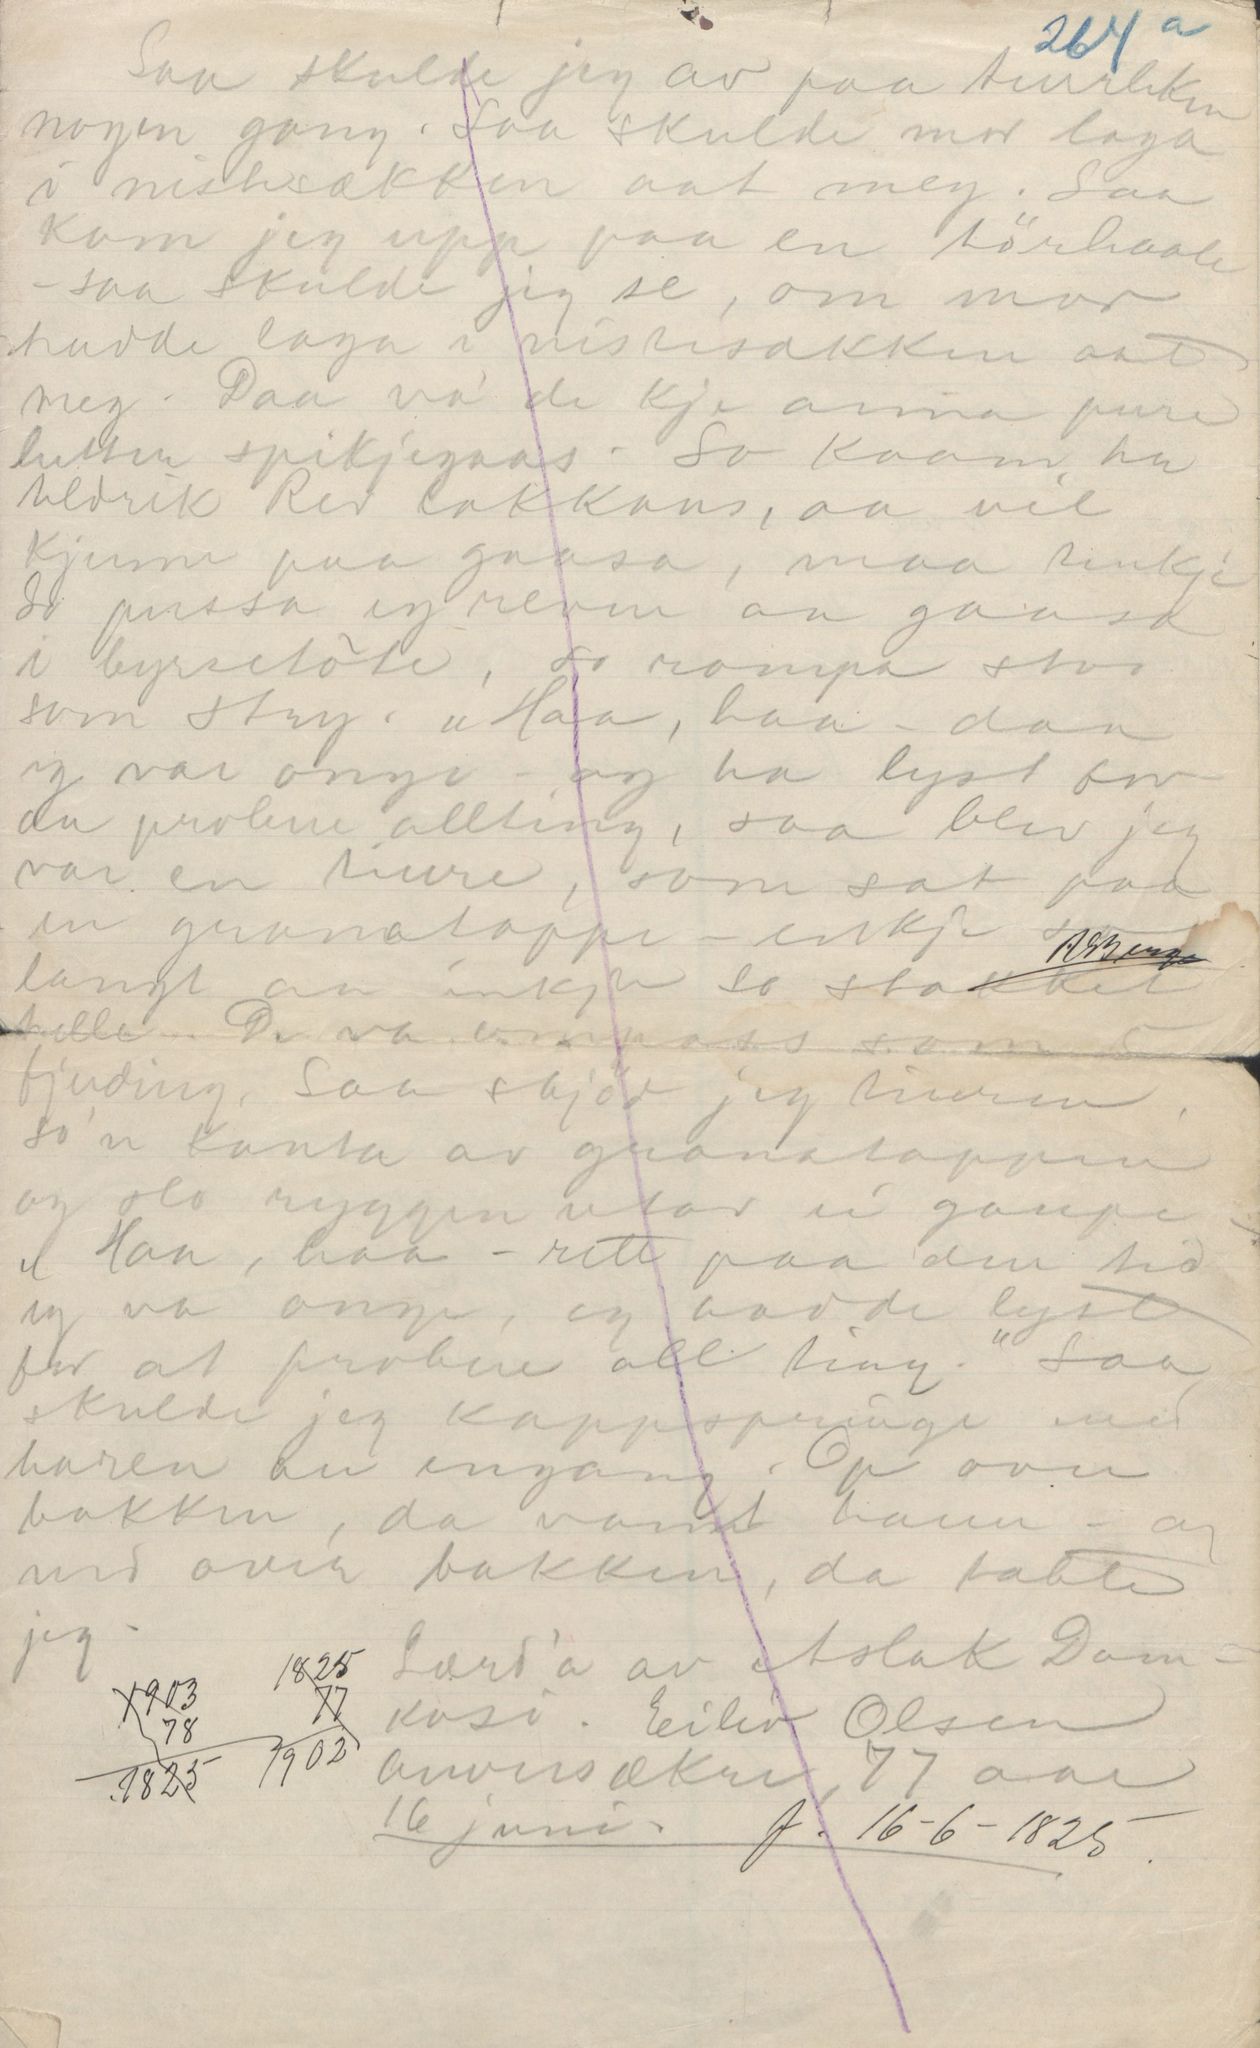 264 a
Saa skulde jeg av paa tiurleken
nogen gang. Saa skulde mor laga
i nistesækken aat meg. Saa
kom jeg upp paa en törhaale
- saa skulde jeg se, om mor
hadde laga i nistesækken aat
meg. Daa va de kje anna pure
lutter spikjegaas. So kaam ha
Hedrik Rev lakkans, aa vil
kjeme paa gaasa, maa tenkje
So pussa eg reven aa gaasa
i byrsetöte, so rompa stod
som stry. "Haa, haa - daa
eg var onge - og ha lyst for
aa probere allting, saa blev jeg
var en tiure, som sat paa
en granatoppe - inkje so
langt aa inkje so stakket
helle. De va ommass som 5
fjuding. Saa skjöd jeg tiuren,
so'n kanta av granatoppen
og slo ryggen utav ei gaupe
"Haa, haa - rett paa den tid
eg va onge, eg hadde lyst
for at probere all ting." Saa
skulde jeg kappspringe med
haren en engang. Op over
bakken, da vant haren - og
ned over bakken, da tabte
jeg.
Lærd'a av Aslak Dam-
kasi. Eiliv Olsen
77 aar
16 juni. f. 16-6-1825.
1903
78
1825
1825
77
1902